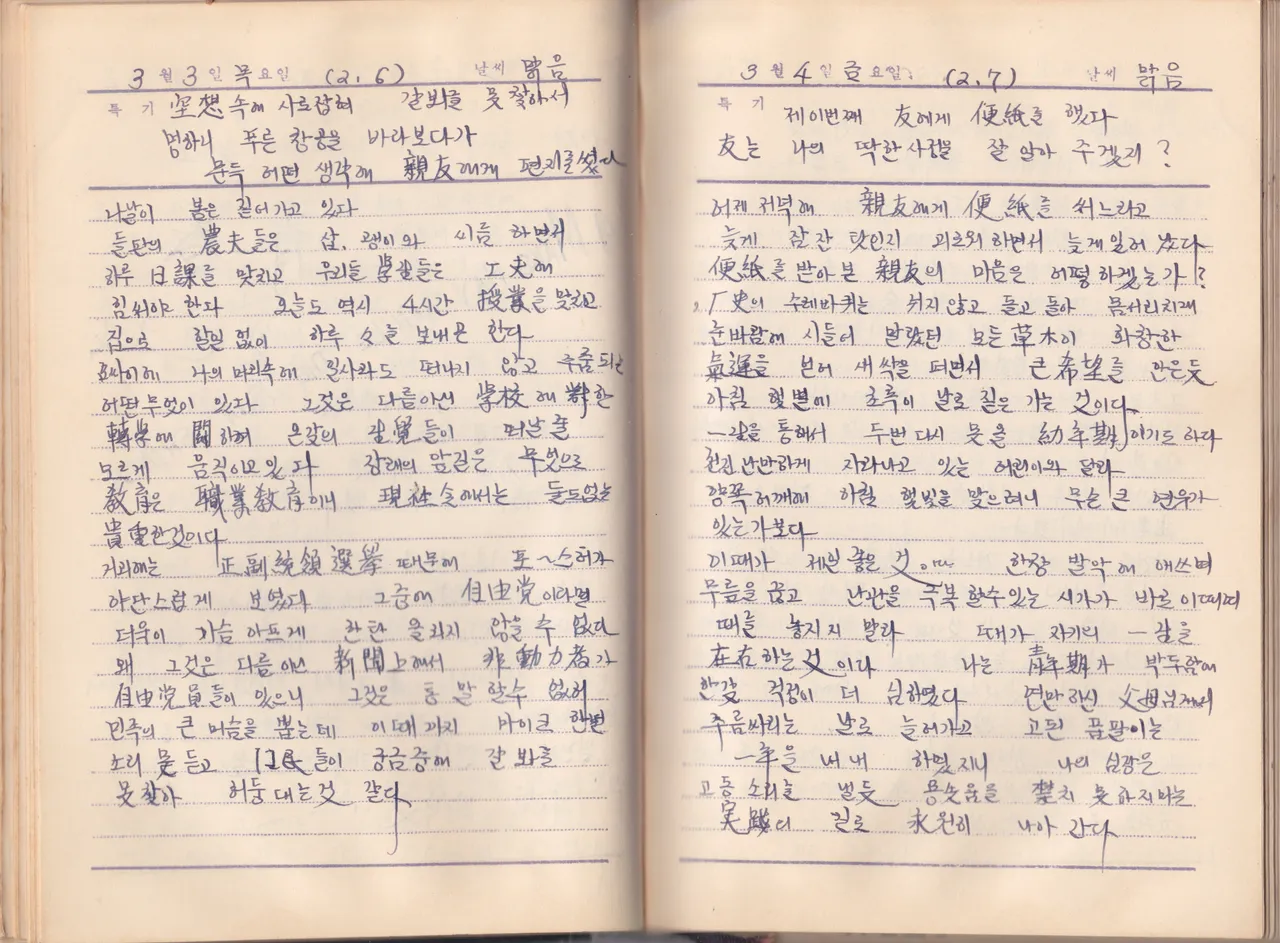 3월 3일 목요일 (2. 6) 날씨 맑음
특기 空想 속에 사로잡혀 갈봐를 못 찾아서
멍하니 푸른 창공을 바라보다가
문득 어떤 생각에 親友에게 편지를 썼다
나날이 봄은 짙어가고 있다
들판의 農夫들은 삽, 괭이와 씨름 하면서
하루 日課를 맞치고 우리들 學生들은 工夫에
힘써야 한다 오늘도 역시 4시간 授業을 맞치고
집으로 할일 없이 하루 々를 보내곤 한다
나의 머리속에 일사라도 떠나지 않고 주춤되는
어떤 무엇이 있다 그것은 다름아닌 学校에 対한
轉学에 関하여 온갖의 갈覺들이 떠날 줄
모르게 움직이고 있다 장래의 앞길은 무엇으로
教育은 職業教育이니 現社会에서는 들도없는
貴重한것이다
거리에는 正副統領 選挙 때문에 포~스터가
야단스럽게 보였다 그중에 自由党이라면
더욱이 가슴 아프게 한탄 을 되지 않을 수 없다
왜 그것은 다름 아닌 新聞上에서 非動力者가
自由党員들이 있으니 그것은 통 말 할수 없어
민족의 큰 머슴을 뽑는데 이때 까지 마이크 한번
소리 못 듣고 民들이 궁금중에 갈 봐를
못찾아 허둥대는것 같다
3월 4일 금요일 (2. 7) 날씨 맑음
특기 제이번째 友에게 便紙를 했다
友는 나의 딱한사정을 잘 알아 주겠지 ?
어제 저녁에 親友에게 便紙를 쓰느라고
늦게 잠 잔 탓인지 괴로워하면서 늦게 일어 났다
便紙를 받아 본 親友의 마음은 어떻하겠는가 ?
厂史의 수레바퀴는 쉬지않고 돌고 돌아 몸서리치게
춘바람에 시들어 말랐던 모든 草木이 화창한
氣運을 얻어 새 싹을 띄면서 큰 希望를 안은듯
아침 햇볕에 초록이 날로 짙은 가는 것이다
一生을 통해서 두번 다시 못올 幼年期이기도 하다
천진난만하게 자라나고 있는 어린이와 달라
양쪽 어깨에 아침 햇빛을 맞으려니 무슨 큰 연유가
있는가보다
이때가 제일 좋은 것 한창 발악에 애쓰며
무릎을 꿇고 난관을 극복 할수 있는 시기가 바로 이때며
때를 놓치지 말라 때가 자기의 一生을
在右하는것 이다 나는 青年期가 박두함에
한갖 걱정이 더 심하였다 연만하신 父母님께서
주름싸리는 날로 늘어가고 고된 품팔이는
一年을 내내 하였지니 나의 심장은
고동 소리를 벌듯 용솟음을 禁치 못하지마는
実踐의 길로 永원히 나아 간다